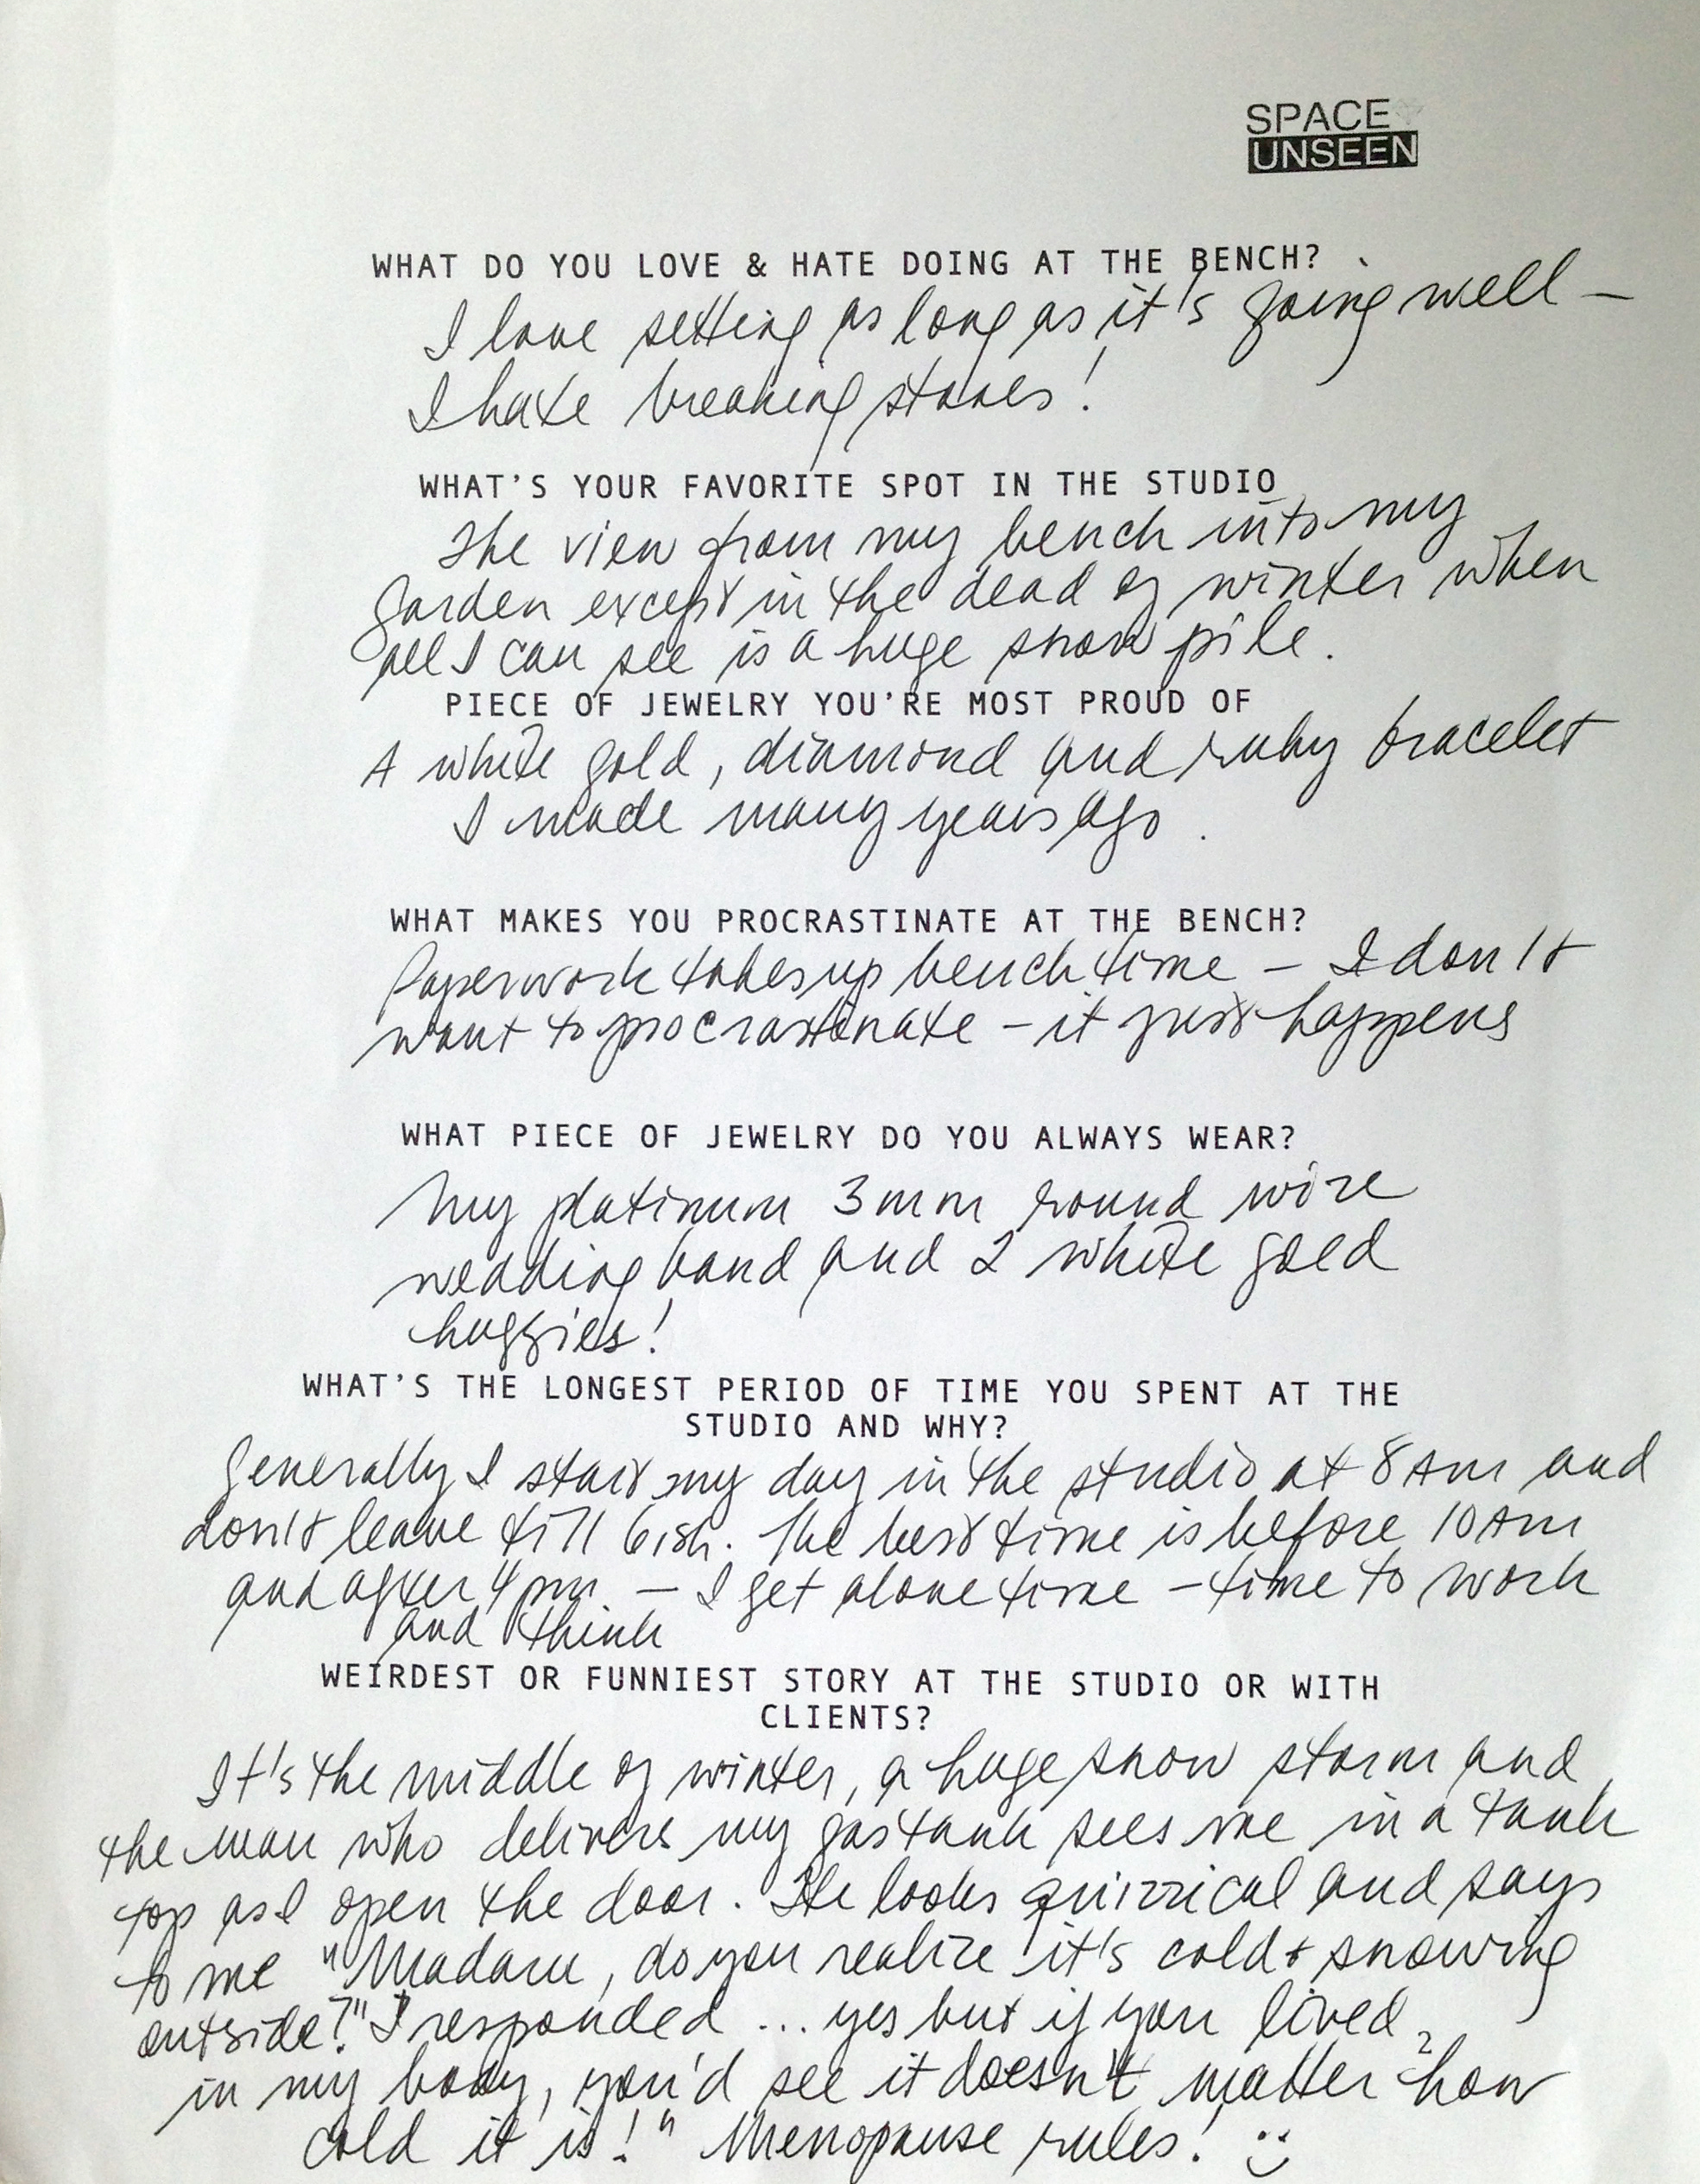 SPACE
UNSEEN
WHAT DO YOU LOVE & HATE DOING AT THE BENCH?
I love setting as long as it's going well –
I hate breaking stones!
WHAT'S YOUR FAVORITE SPOT IN THE STUDIO
The view from my bench into my
garden except in the dead of winter when
all I can see is a huge snow pile.
PIECE OF JEWELRY YOU'RE MOST PROUD OF
A white gold, diamond and ruby bracelet
I made many years ago.
WHAT MAKES YOU PROCRASTINATE AT THE BENCH?
Paperwork takes up bench time – I don't
want to procrastinate – it just happens
WHAT PIECE OF JEWELRY DO YOU ALWAYS WEAR?
My platinum 3mm round wire
wedding band and 2 white gold
huggies!
WHAT'S THE LONGEST PERIOD OF TIME YOU SPENT AT THE
STUDIO AND WHY?
Generally I start my day in the studio at 8 AM and
don't leave till 6ish. The best time is before 10 AM
and after 4 pm – I get alone time – time to work
and think
WEIRDEST OR FUNNIEST STORY AT THE STUDIO OR WITH
CLIENTS?
It's the middle of winter, a huge snow storm and
the man who delivers my gas tank sees me in a tank
top as I open the door. He looks quizzical and says
to me "Madam, do you realize it's cold & snowing
outside?" I responded ... yes but if you lived
in my body, you'd see it doesn't matter how
cold it is!" Menopause rules! :)